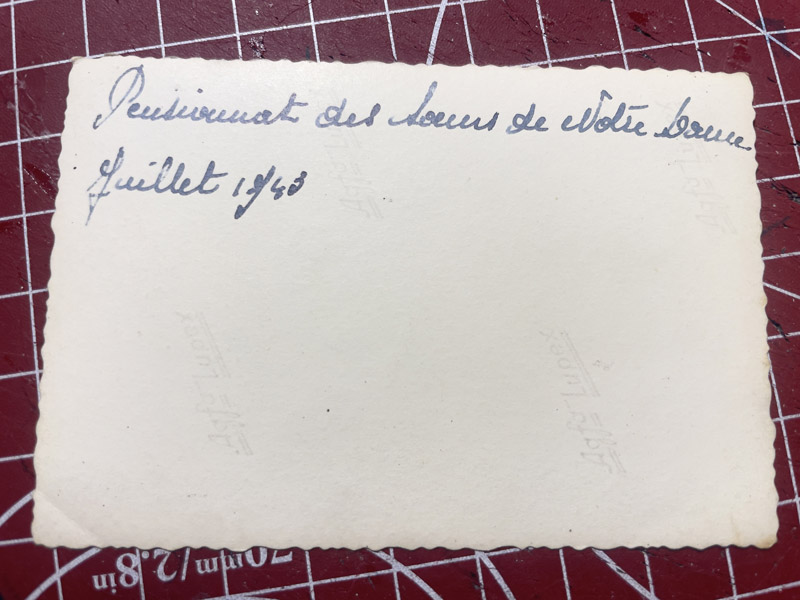 Pensionnat des Sœurs de Nôtre Dame
Juillet 1943
Agfa Lupex
Agfa Lupex
Agfa Lupex
Agfa
70mm/2.8in